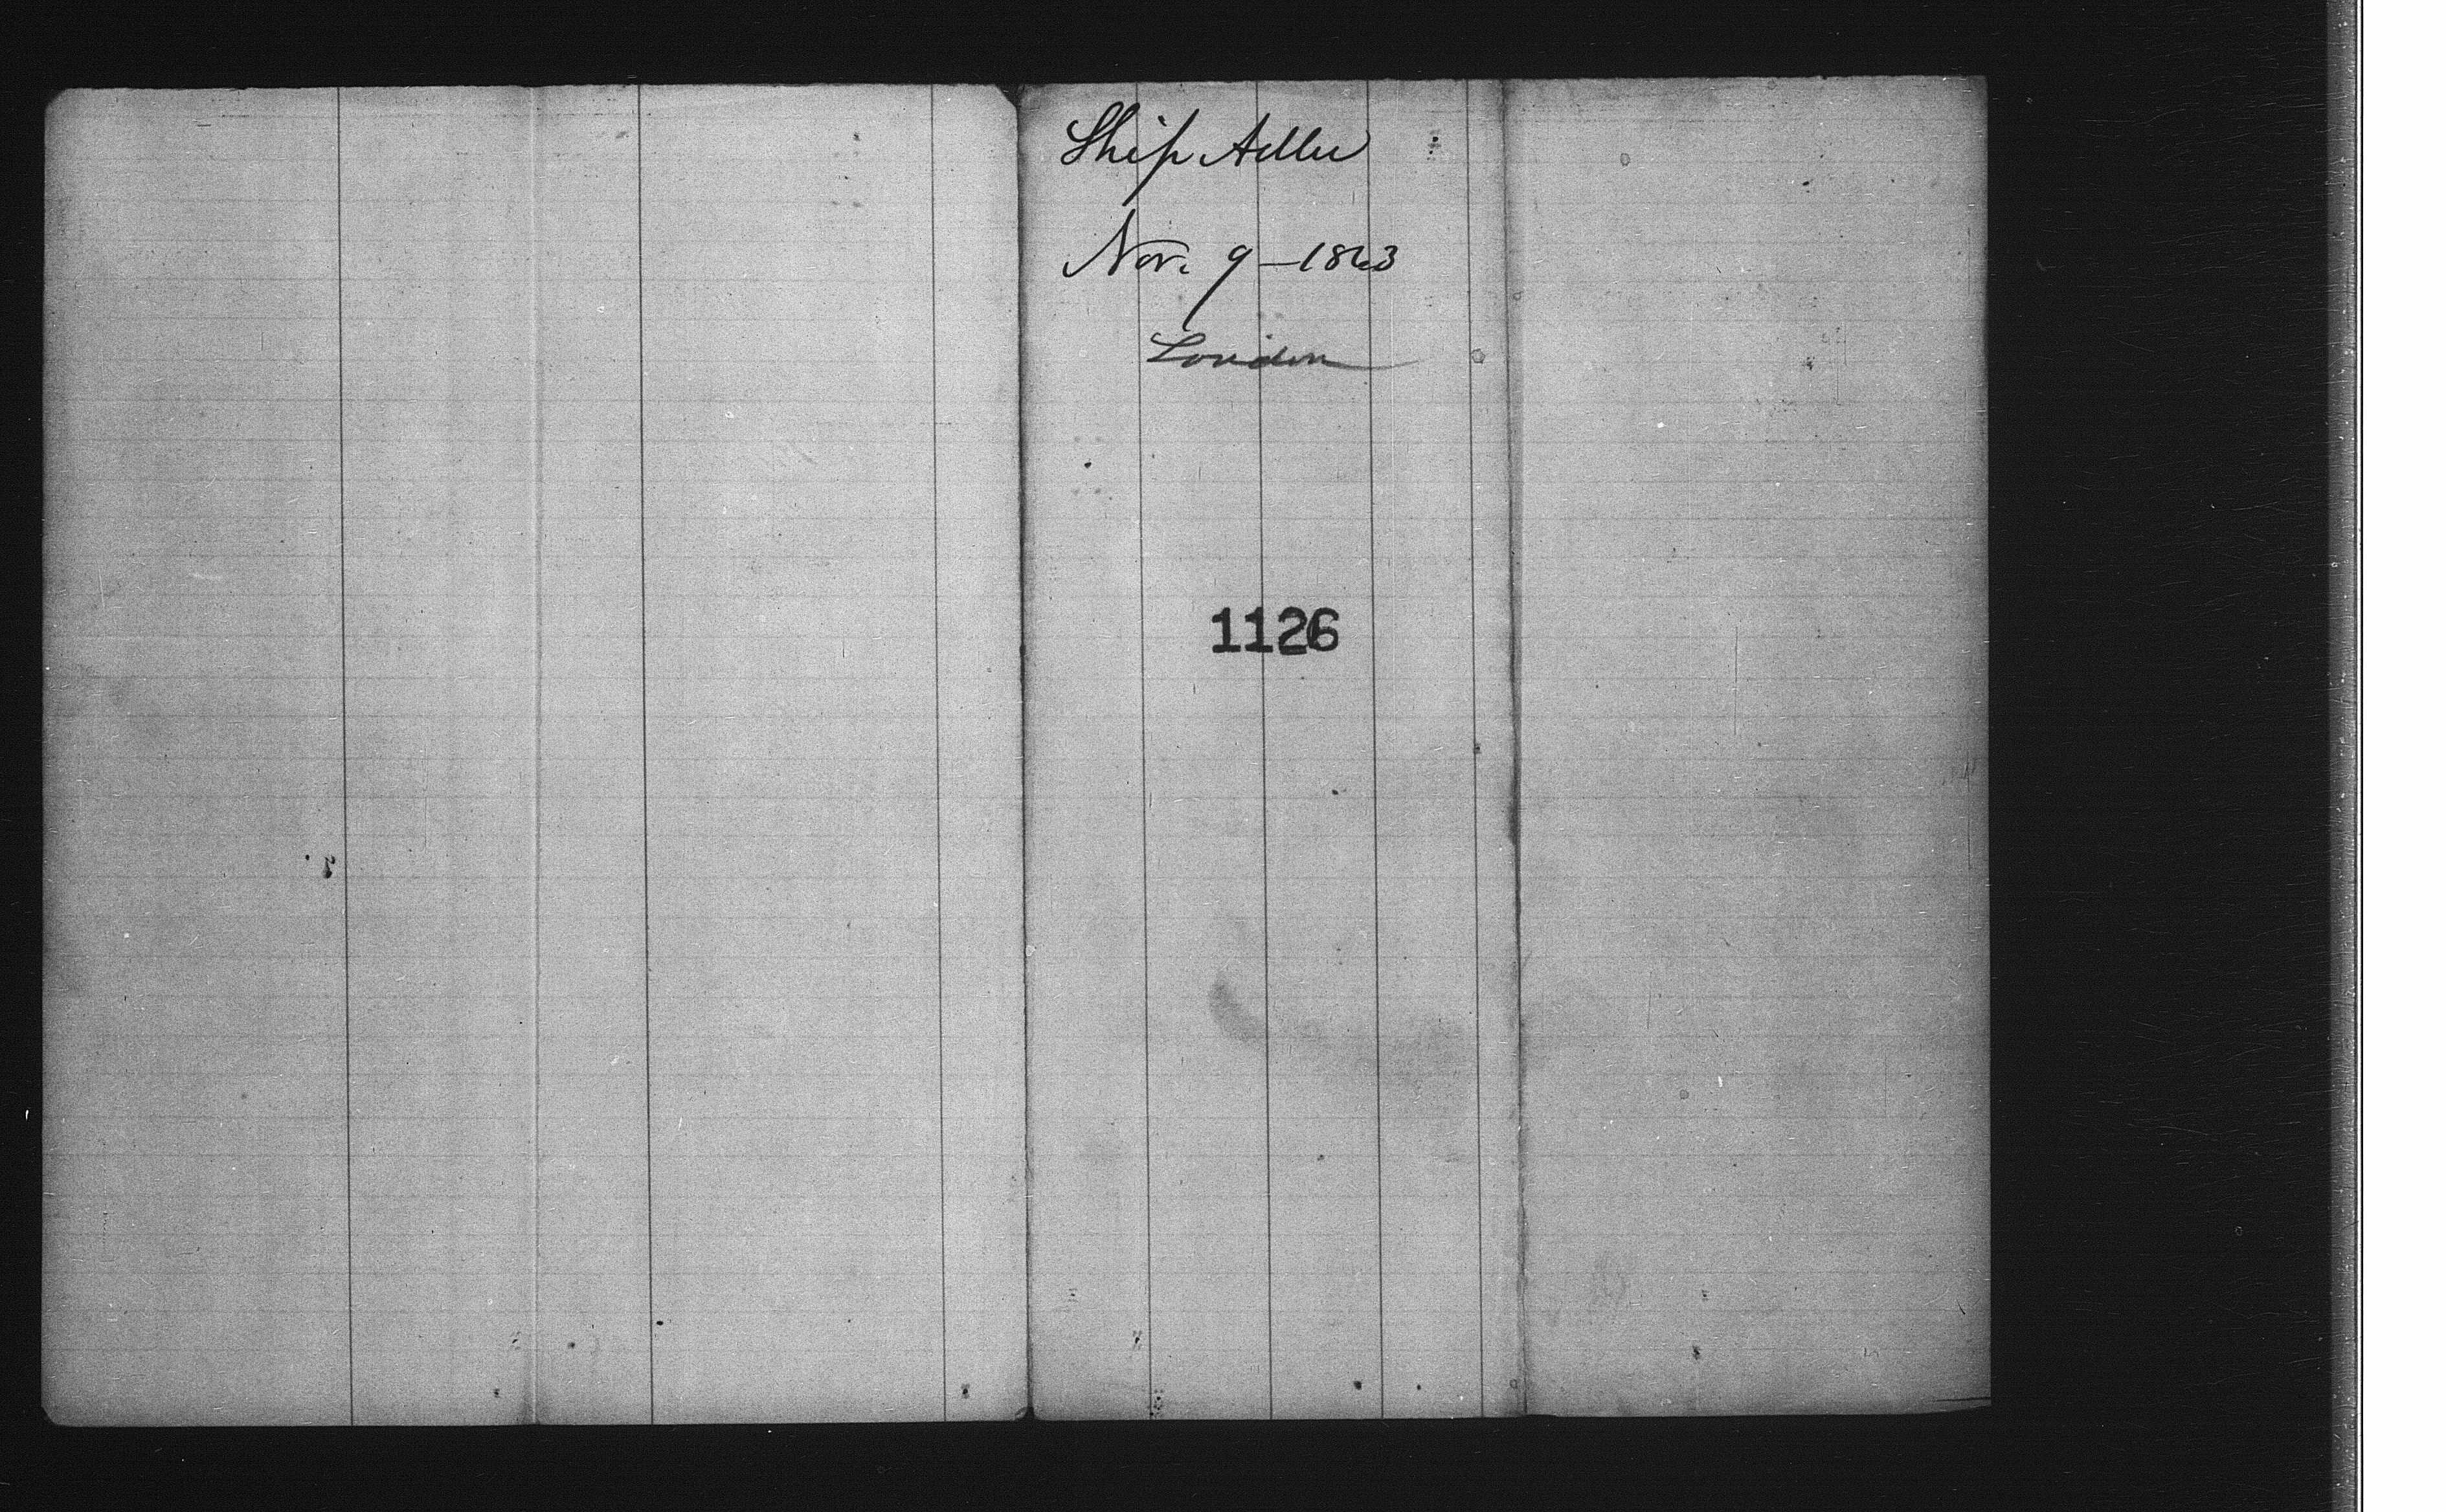 Ship Adler
Nov. 9 - 1863
London
1126